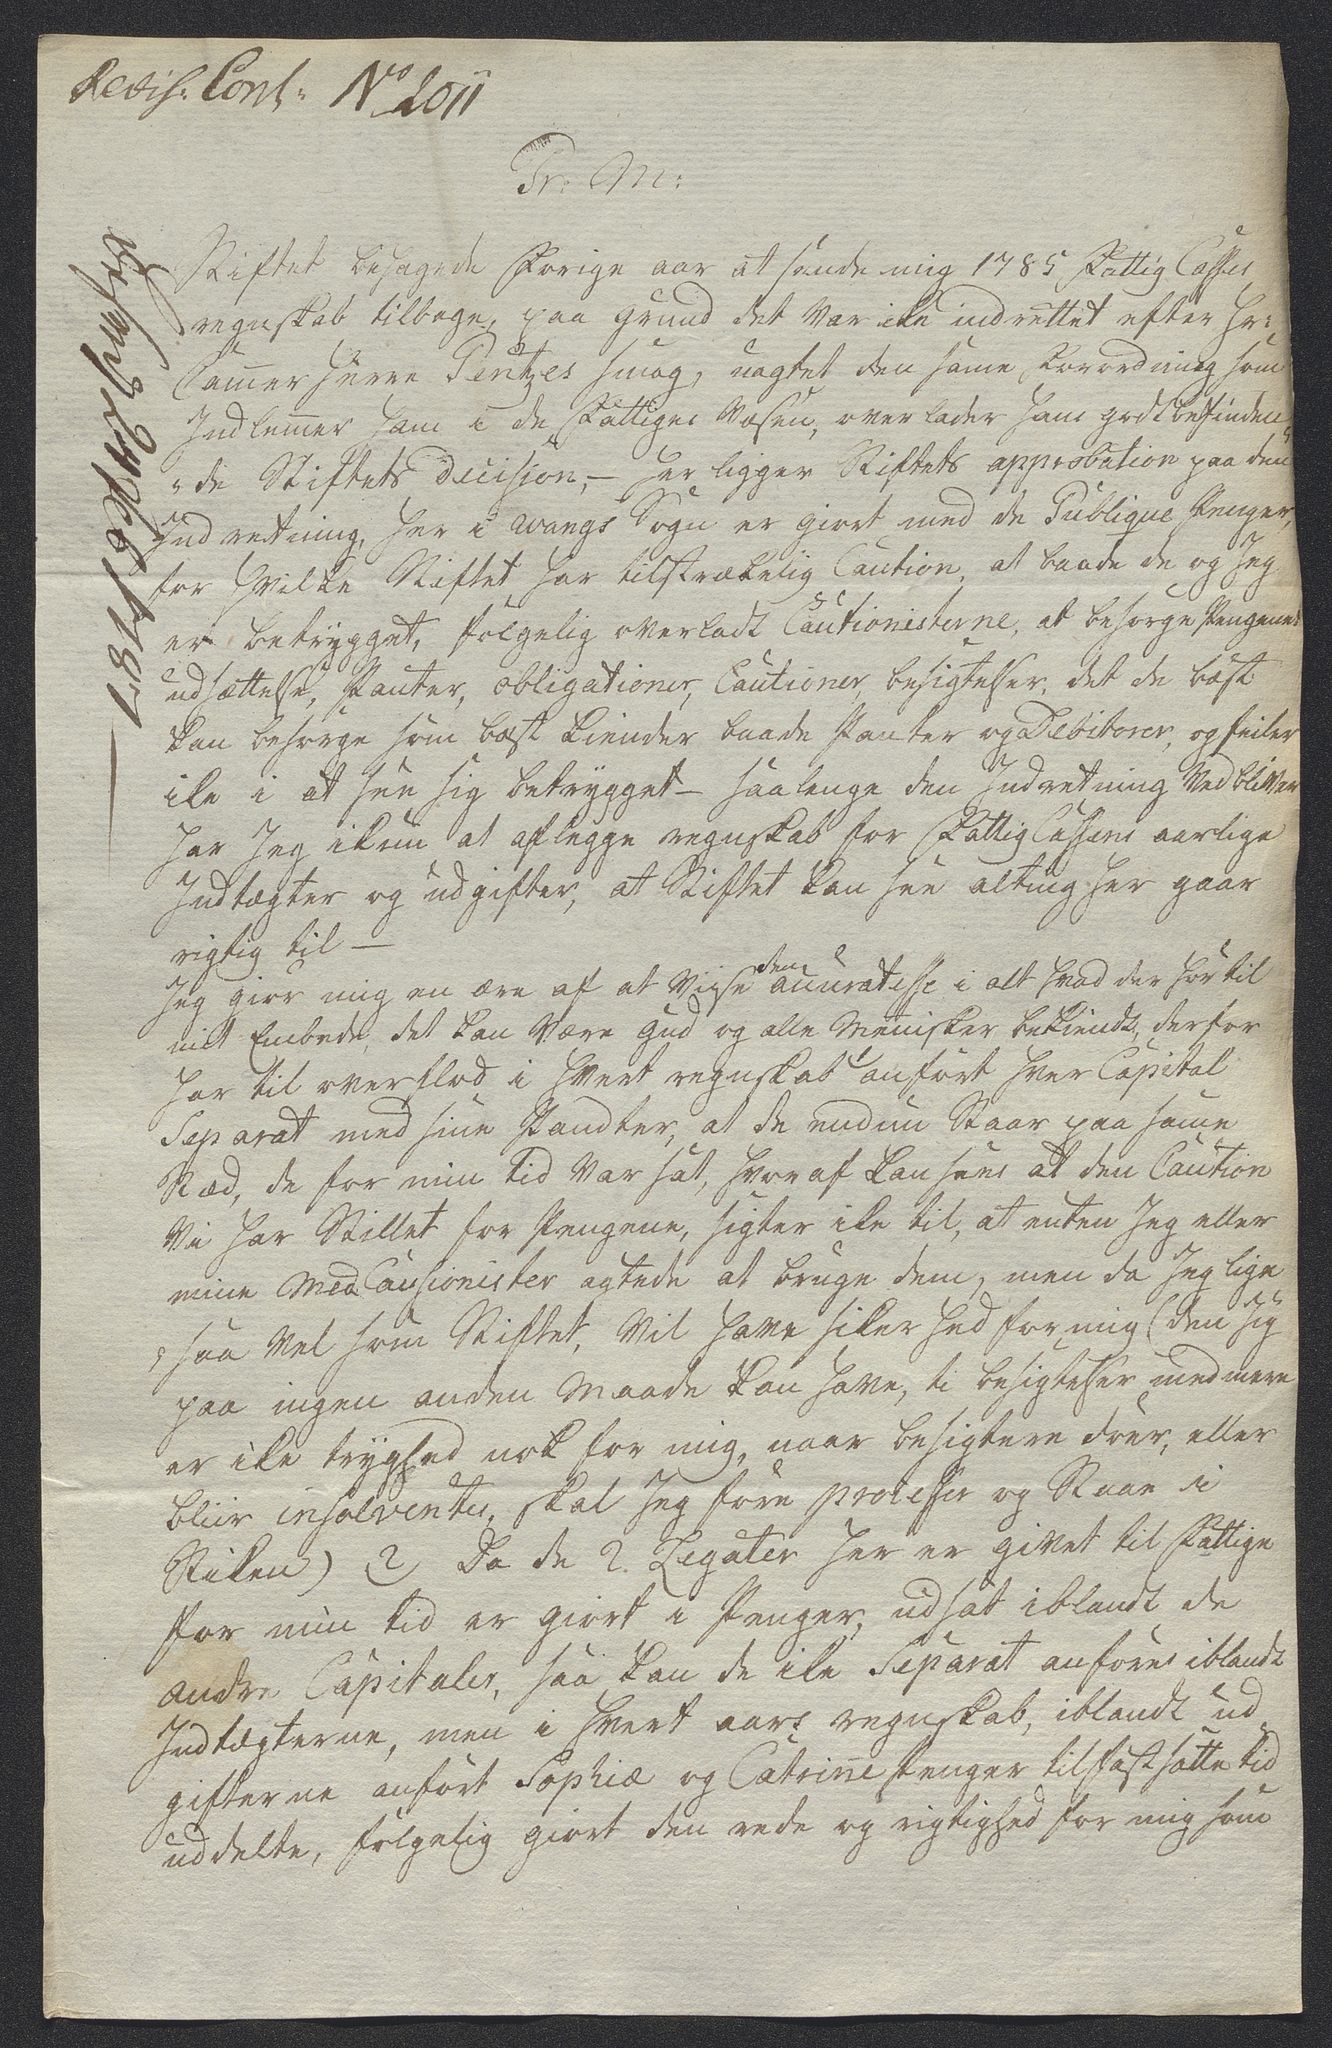 Revis: Cont: No 2011
Pr: M:
Stiftet behagede Forige aar at sende mig 1785 Fattig Casses
regnskab tilbage, paa grund det var ike indrettet efter Hr:
Camer Herre Pentzes smag, uagtet den same Forordning som
Indlemer ham i de Fattiges Væsen, overlader hans godtbefinden-
-de Stiftets Decision, – her ligger Stiftets approbation paa den
Indretning, her i Wangs Sogn er giort med de Publique Penger,
for hvilke Stiftet har tilstrækelig Caution, at baade de og Jeg
er betrygget, følgelig overladt Cautionisterne, at besørge Pengenes
udsættelse, Panter, obligationer, Cautioner, besigtelser, det de best
kan besørge som best kiender baade Panter og Debitorer, og feiler
ike i at see sig betrygget – saalenge den Indretning Vedbliver
har Jeg ikun at aflegge regnskab for Fattig Cassens aarlige
Indtægter og udgifter, at Stiftet kan see alting her gaar
rigtig til –
Jeg giør mig en ære af at Viise den accuratesse i alt hvad der hør til
mit Embede, det kan være Gud og alle Menisker bekiendt, derfor
har til overflød i hvert regnskab anført hver Capital
Separat med sine Pandter, at de endnu Staar paa same
Stæd, de for min tid var sat, hvoraf kan sees at den Caution
Vi har Stillet for Pengene, sigter ike til, at enten Jeg eller
mine Med Cautionister agtede at bruge dem, men da Jeg lige
-saa vel som Stiftet, vil have sikerhed for mig (den Jeg
paa ingen anden Maade kan have, ti besigtelser med mere
er ike tryghed nok for mig, naar besigtere døer, eller
bliir insolventes, skal Jeg føre processer og Staae i
Stiken) 2 Da de 2. Legater her er givet til Fattige
for min tid er giort i Penger, udsat iblandt de
andre Capitaler, saa kan de ike Separat anføres iblandt
Indtægterne, men i hvert aars regnskab, iblandt ud
gifterne anført Sophiæ og Catrine Penger til fastsatte tid
uddelte, følgelig giort den rede og rigtighed for mig som
1787